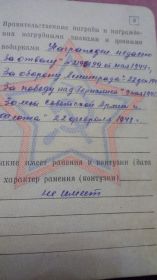 Правительственные награды и награжде-
ния нагрудными знаками и ценными
подарками Награжден медалью
"За отвагу"
"За оборону Ленинграда"
"За победу над Германией"
Советской Армии и
флота" 22 февраля 1948 г.
какие имеет ранения и контузии (дата
характер ранения (контузии)
не имеет